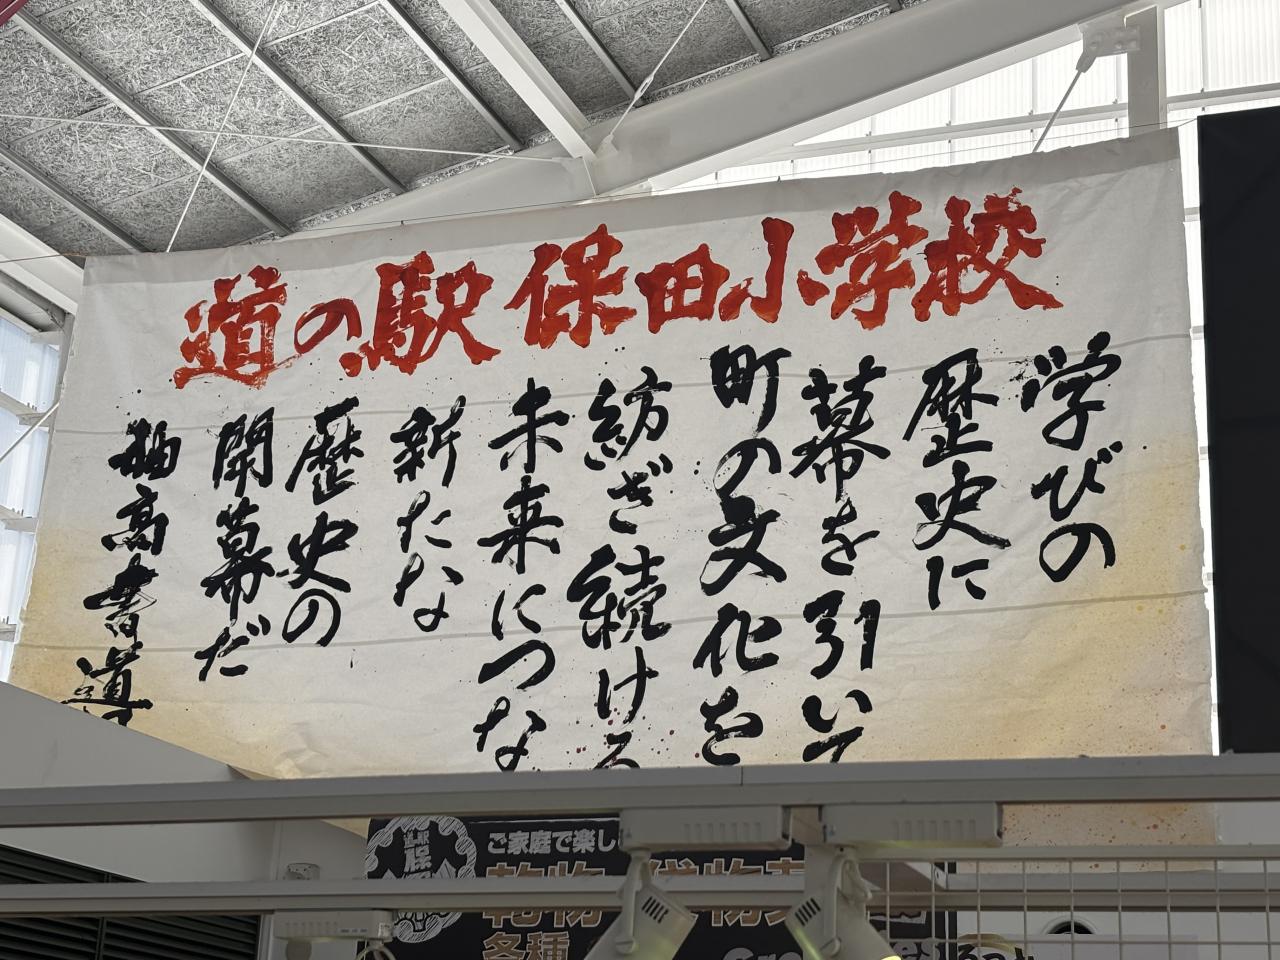 道の駅保田小学校
学びの
歴史に
幕を引いて
町の文化を
紡ぎ続ける
未来につな
新たな
歴史の
開幕だ
柚高書道
ご家庭で楽し
乾物
各種